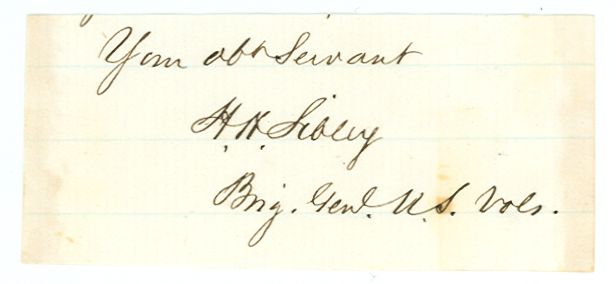 Your obt Servant
H. H. Sibley
Brig. Genl. U.S. Vols.